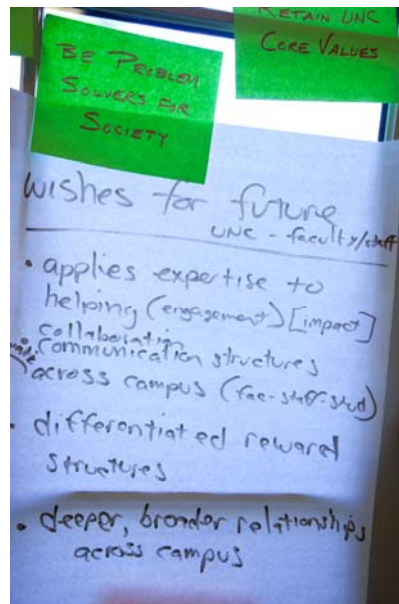 RETAIN UNC
CORE VALUES
BE PROBLEM
SOLVERS FOR
SOCIETY
wishes for future
UNC - faculty/staff
• applies expertise to
helping (engagement) [impact]
collaboration
• communication structures
across campus (fac-staff-stud)
• differentiated reward
structures
• deeper, broader relationships
across campus